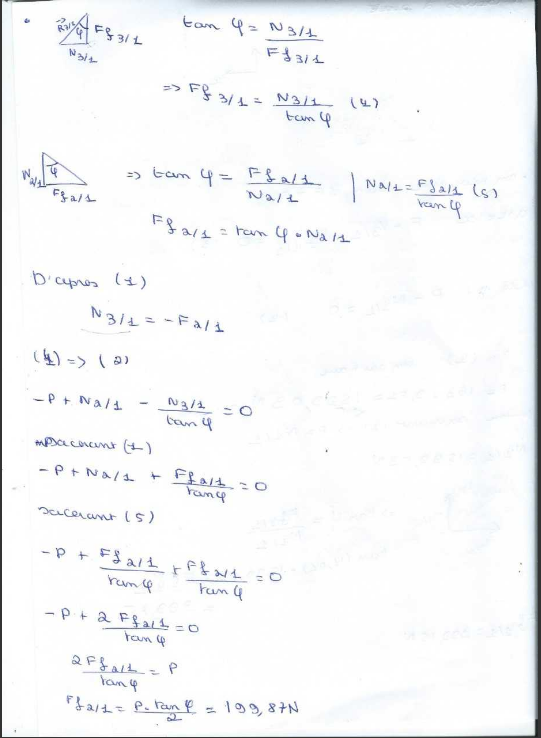 R3/1 φ Ff3/1
N3/1
tan φ = N3/1 / Ff3/1
=> Ff3/1 = N3/1 / tan φ (4)
N2/1 φ Ff2/1
=> tan φ = Ff2/1 / N2/1 | N2/1 = Ff2/1 / tan φ (5)
Ff2/1 = tan φ • N2/1
D'apres (1)
N3/1 = - F2/1
(4) => (2)
-P + N2/1 - N3/1 / tan φ = 0
(1)
-P + N2/1 + Ff2/1 / tan φ = 0
(5)
-P + Ff2/1 / tan φ + Ff2/1 / tan φ = 0
-P + 2 Ff2/1 / tan φ = 0
2 Ff2/1 / tan φ = P
Ff2/1 = P. tan φ / 2 = 199,87N